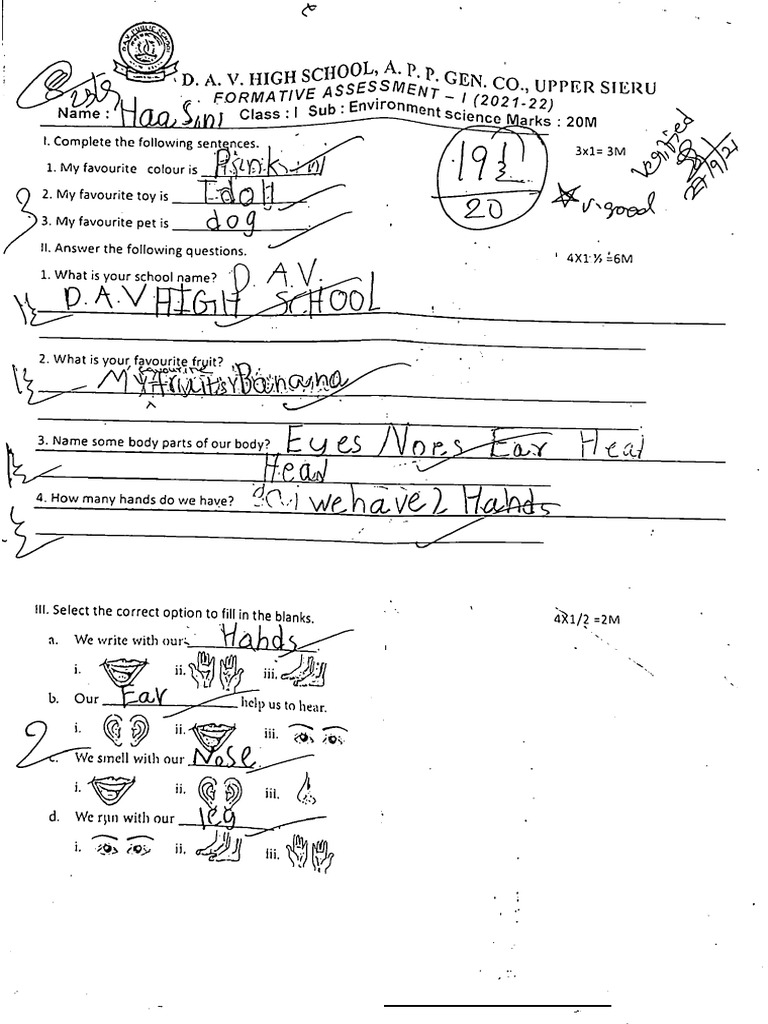 D. A. V. HIGH SCHOOL, A. P. P. GEN. CO., UPPER SIERU
FORMATIVE ASSESSMENT – I (2021-22)
Name : HaaSini Class : I Sub : Environment science Marks : 20M
I. Complete the following sentences. 3x1= 3M
19½
20
verified
27/9/21
v.good
1. My favourite colour is Pink
2. My favourite toy is doll
3. My favourite pet is dog
3
II. Answer the following questions. 4X1 ½ =6M
1. What is your school name? D. A.V.
D.A.V HIGH SCHOOL
1½
2. What is your favourite fruit?
favourite
My fruit is Banana
1½
3. Name some body parts of our body? Eyes Noes Ear Head
Head
1½
4. How many hands do we have? we have 2 Hands
1½
III. Select the correct option to fill in the blanks. 4X1/2 =2M
a. We write with our Hands
i. ii. iii.
b. Our Ear help us to hear.
i. ii. iii.
2
c. We smell with our Nose
i. ii. iii.
d. We run with our leg
i. ii. iii.